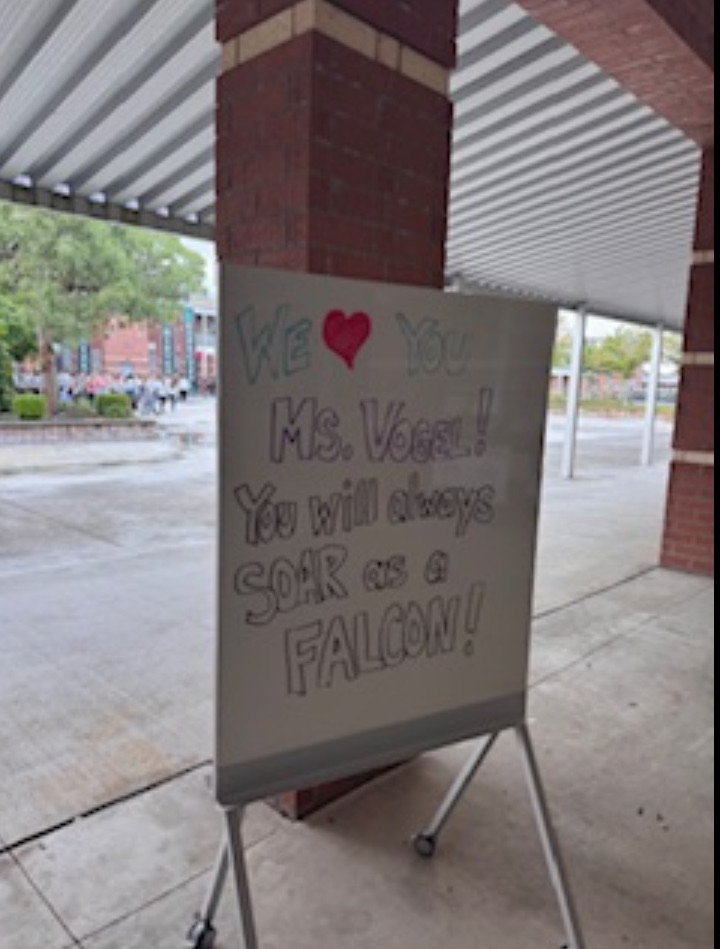 WE ❤ YOU
MS. VOGEL!
You will always
SOAR as a
FALCON!